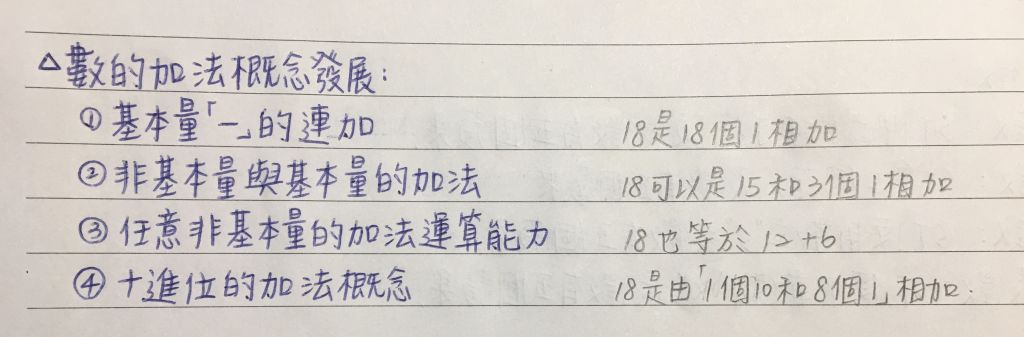 △數的加法概念發展：
① 基本量「一」的連加 18是18個1相加
② 非基本量與基本量的加法 18可以是15和3個1相加
③ 任意非基本量的加法運算能力 18也等於12+6
④ 十進位的加法概念 18是由「1個10和8個1」相加.